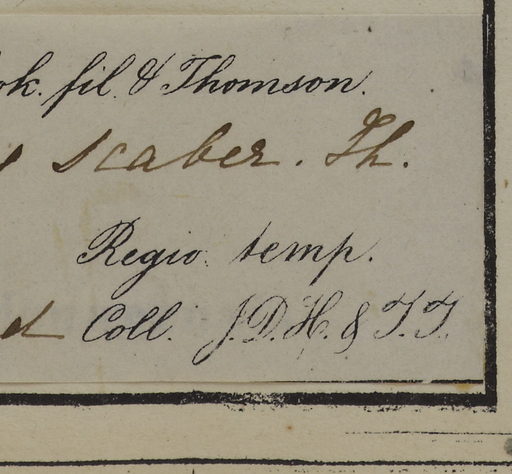 ok. fil. & Thomson.
scaber. Th.
Regio temp.
d Coll. J.D.H. & T.T.